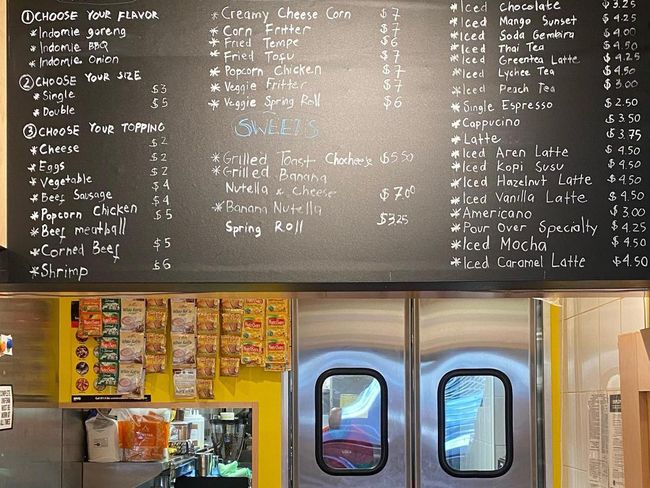 ① CHOOSE YOUR FLAVOR
* Indomie goreng
* Indomie BBQ
* Indomie Onion
② CHOOSE YOUR SIZE
* Single $3
* Double $5
③ CHOOSE YOUR TOPPING
* Cheese $2
* Eggs $2
* Vegetable $2
* Beef Sausage $4
* Popcorn Chicken $4
* Beef meatball $5
* Corned Beef $5
* Shrimp $6
* Creamy Cheese Corn $7
* Corn Fritter $7
* Fried Tempe $6
* Fried Tofu $7
* Popcorn Chicken $7
* Veggie Fritter $7
* Veggie Spring Roll $6
SWEETS
* Grilled Toast Chocheese $5.50
* Grilled Banana
Nutella & Cheese $7.00
* Banana Nutella
Spring Roll $3.25
* Iced Chocolate $3.25
* Iced Mango Sunset $4.25
* Iced Soda Gembira $4.00
* Iced Thai Tea $4.50
* Iced Greentea Latte $4.25
* Iced Lychee Tea $4.50
* Iced Peach Tea $3.00
* Single Espresso $2.50
* Cappucino $3.50
* Latte $3.75
* Iced Aren Latte $4.50
* Iced Kopi Susu $4.50
* Iced Hazelnut Latte $4.50
* Iced Vanilla Latte $4.50
* Americano $3.00
* Pour Over Specialty $4.25
* Iced Mocha $4.50
* Iced Caramel Latte $4.50